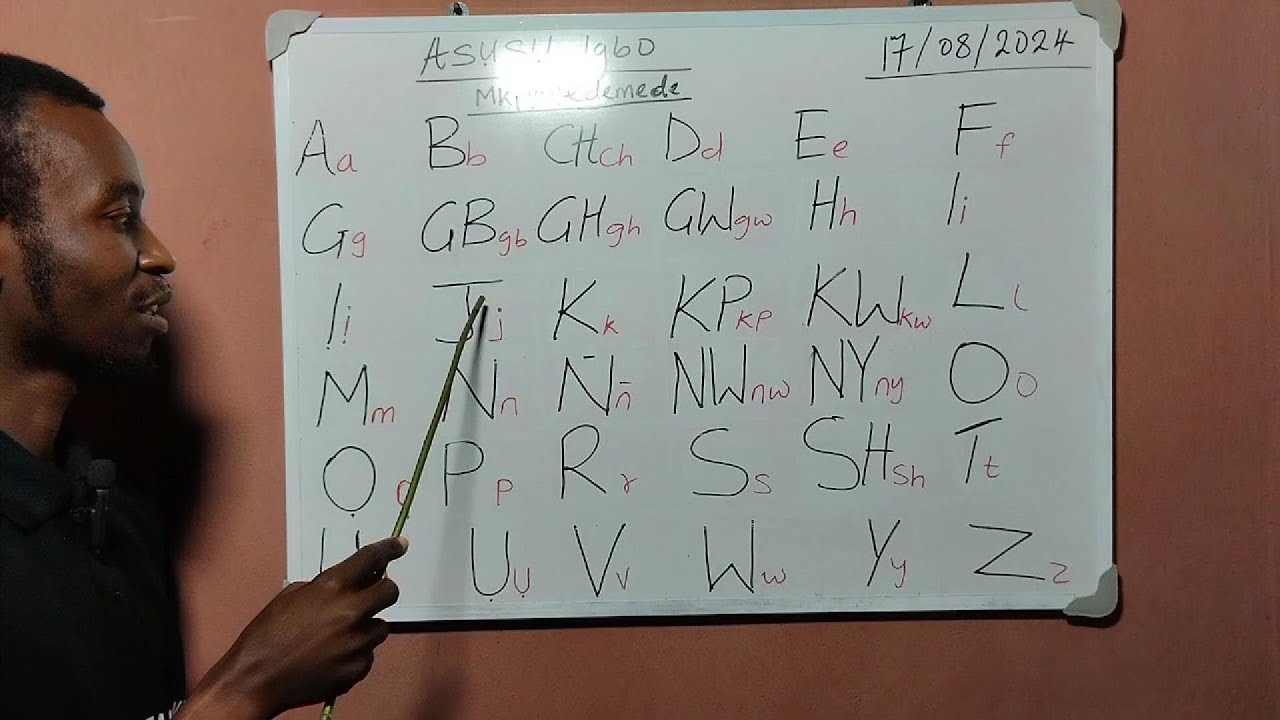 ASUSU Igbo
17/08/2024
Mkp edemede
Aa Bb CHch Dd Ee Ff
Gg GBgb GHgh GWgw Hh Ii
Ịị Jj Kk KPkp KWkw Ll
Mm Nn N̄n̄ NWnw NYny Oo
Ọ Pp Rr Ss SHsh Tt
U Ụụ Vv Ww Yy Zz